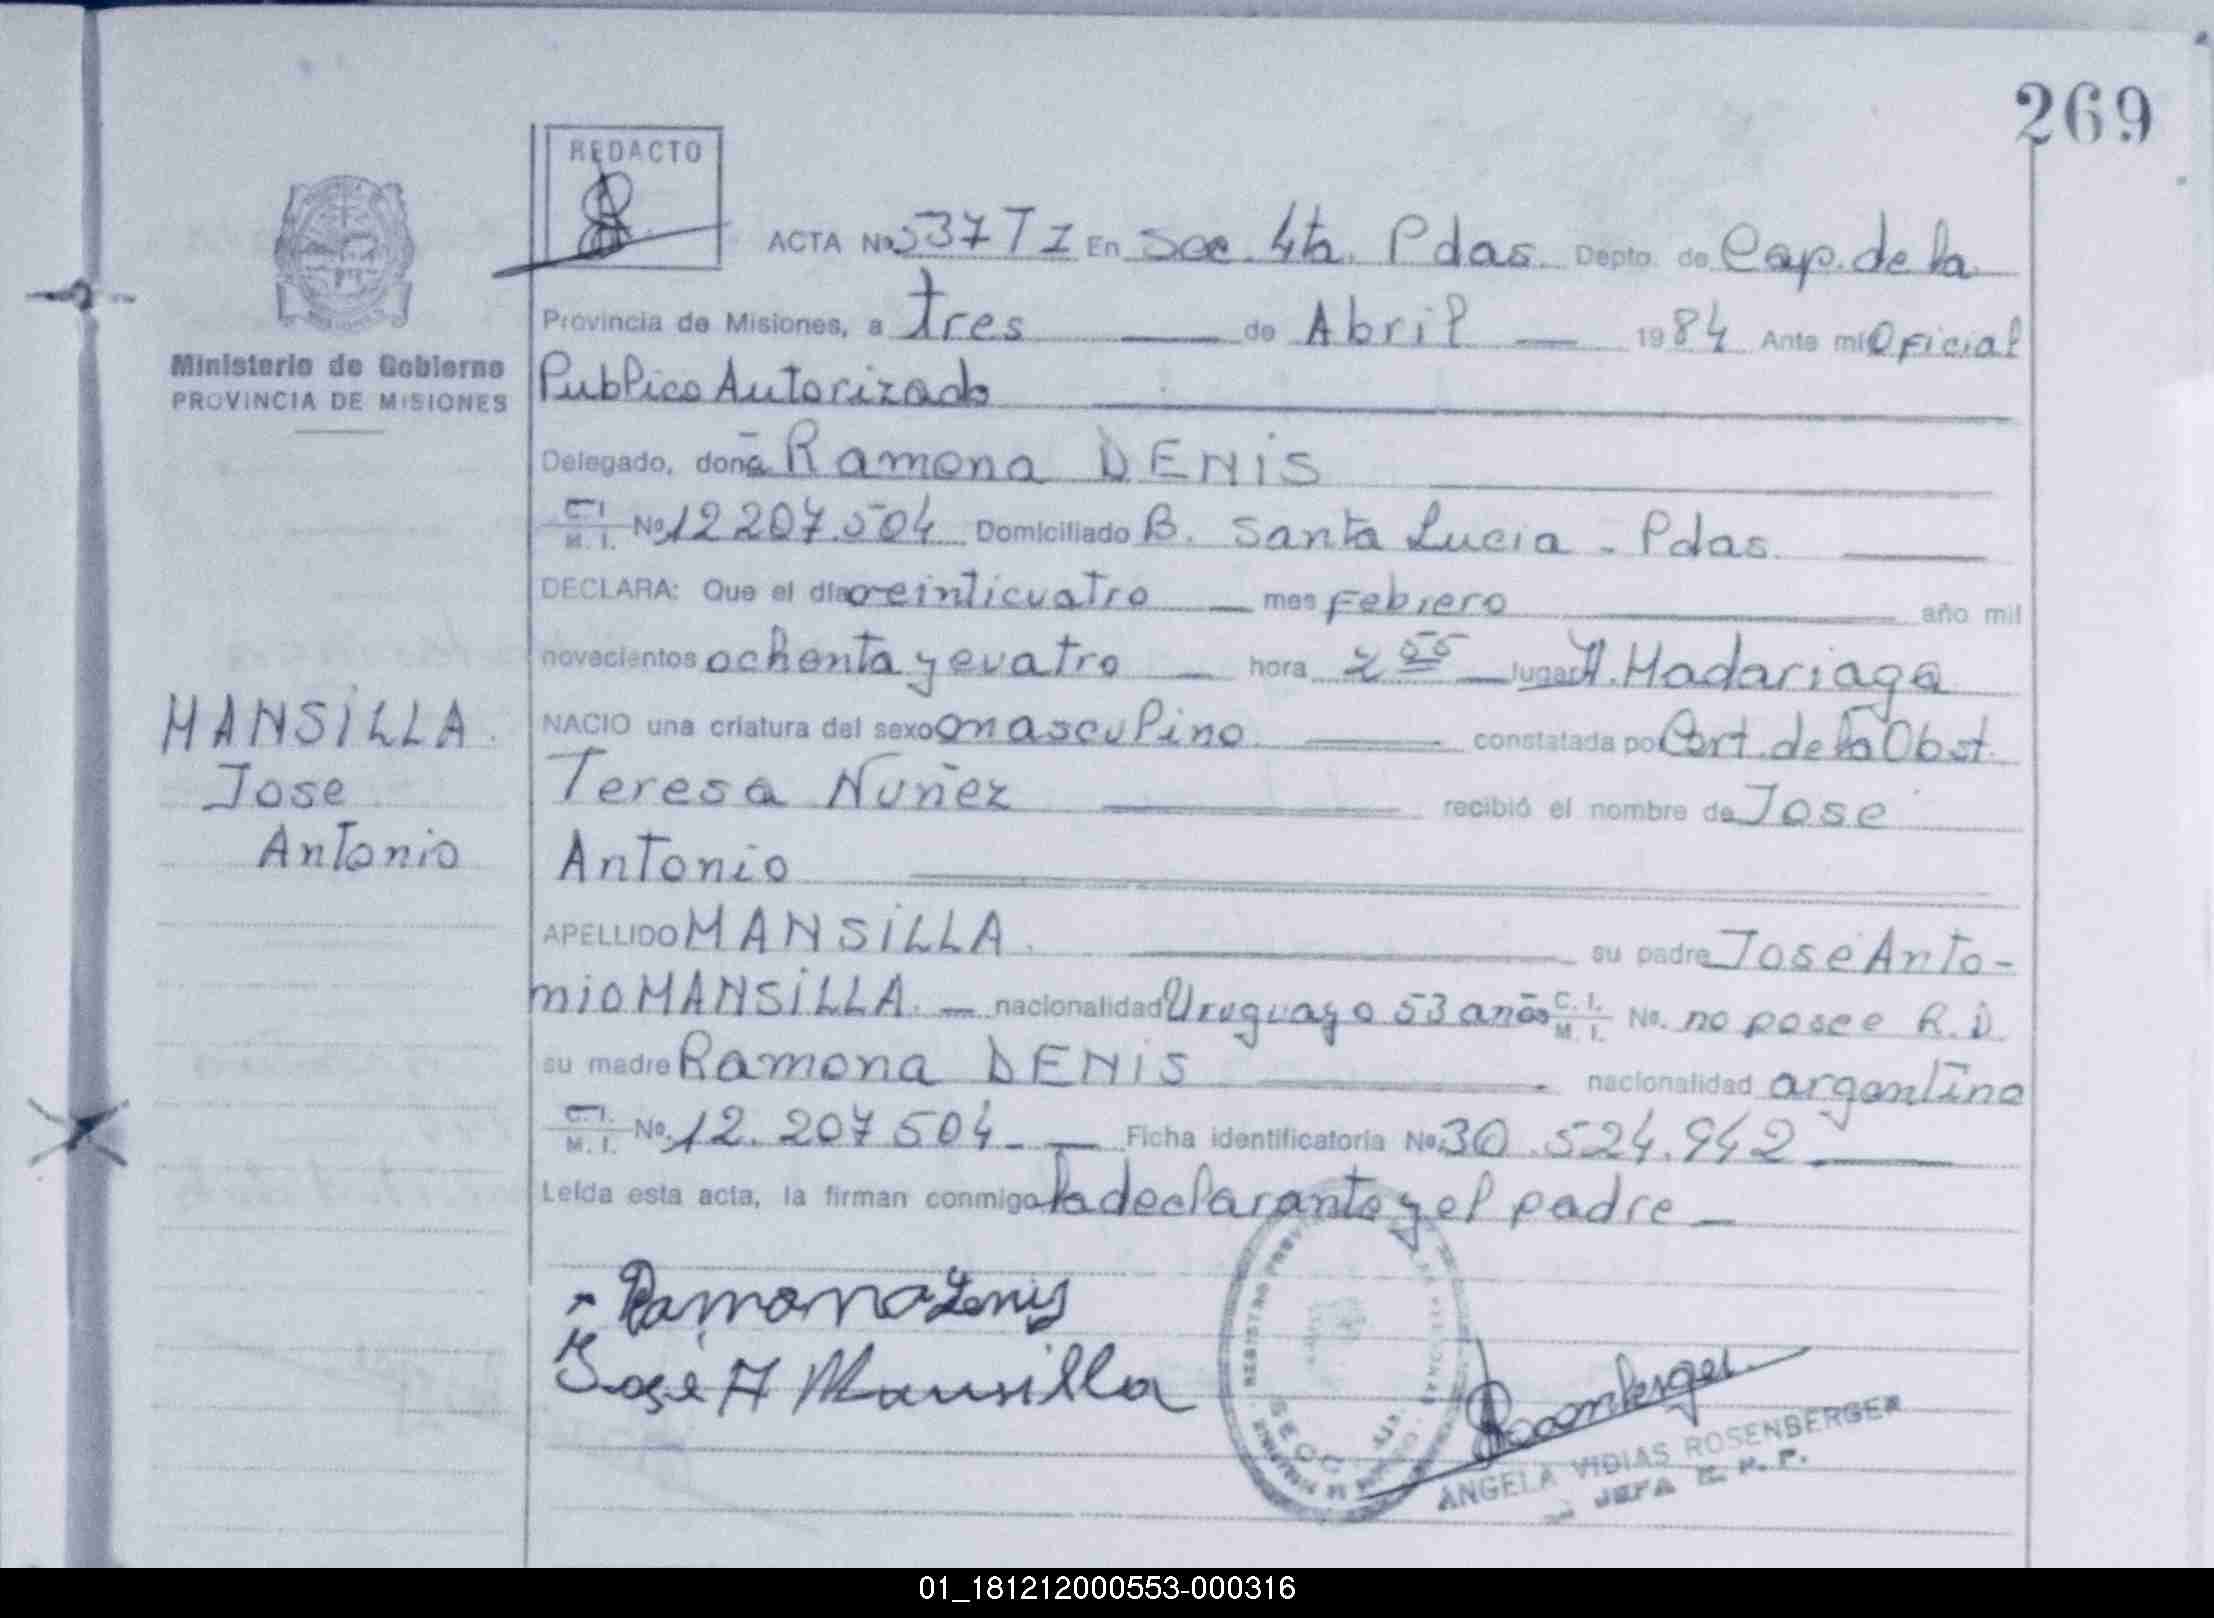 269
REDACTO
ACTA No 537 T I En Sec. 4ta. Pdas. Depto. de Cap. de la
Provincia de Misiones, a tres de Abril 1984 Ante mí Oficial
Ministerio de Gobierno
PROVINCIA DE MISIONES
Publico Autorizado
Delegado, doña Ramona DENIS
C. I. M. I. No 12 207.504 Domiciliado B. Santa Lucia - Pdas.
DECLARA: Que el día veinticuatro mes Febrero año mil
novecientos ochenta y cuatro hora 2 55 lugar H. Madariaga
MANSILLA
Jose
Antonio
NACIO una criatura del sexo masculino constatada por Cert. de la Obst.
Teresa Nuñez recibió el nombre de Jose
Antonio
APELLIDO MANSILLA su padre Jose Anto-
nio MANSILLA. nacionalidad Uruguayo 53 años C. I. M. I. No. no posee R. D.
su madre Ramona DENIS nacionalidad argentina
C. I. M. I. No. 12. 207 504 Ficha identificatoria No. 30.524.942
Leída esta acta, la firman conmigo la declarante y el padre
Ramona Denis
José A Mansilla
REGISTRO PROV
SECC 4ta.
Rosenberger
ANGELA VIDIAS ROSENBERGER
JEFA
01_181212000553-000316